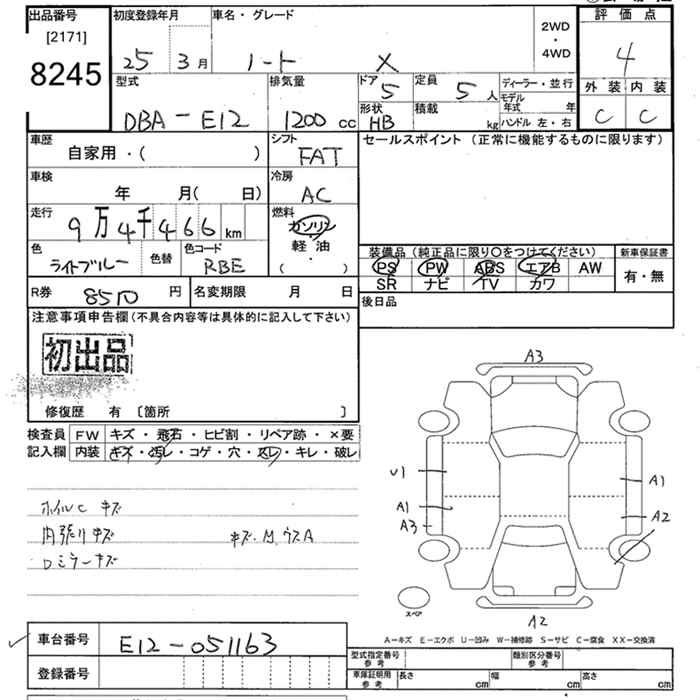 出品番号
[2171]
8245
初度登録年月
25 3月
車名・グレード
ノート X
2WD
・
4WD
評価点
4
外装 内装
C C
型式
DBA-E12
排気量
1200 cc
ドア
5
定員
5 人
形状
HB
積載
kg
ディーラー・並行
モデル年式 年
ハンドル 左・右
車歴
自家用・( )
シフト
FAT
セールスポイント (正常に機能するものに限ります)
車検
年 月( 日)
冷房
AC
走行
9万4千466 km
燃料
ガソリン
軽油
( )
色
ライトブルー
色替
色コード
RBE
装備品 (純正品に限り○をつけてください)
PS PW ABS エアB AW
SR ナビ TV カワ
新車保証書
有・無
R券
8510 円
名変期限 月 日
後日品
注意事項申告欄 (不具合内容等は具体的に記入して下さい)
初出品
修復歴 有 [箇所 ]
検査員記入欄
FW キズ・飛石・ヒビ割・リペア跡・×要
内装 キズ・汚レ・コゲ・穴・スレ・キレ・破レ
ホイルC キズ
内張りキズ
キズ.M.ウスA
Dミラーキズ
A3
U1
A1
A3
A1
A2
A2
スペア
A-キズ E-エクボ U-凹み W-補修跡 S-サビ C-腐食 XX-交換済
車台番号
E12-051163
登録番号
型式指定番号
参考
類別区分番号
参考
車庫証明用
参考
長さ cm
幅 cm
高さ cm